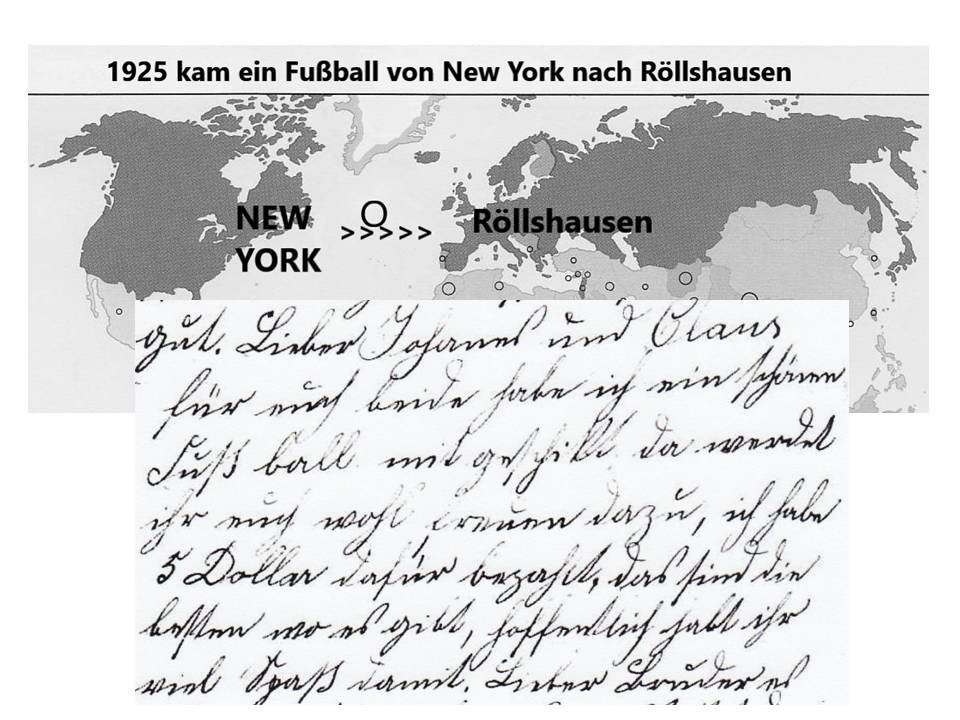 1925 kam ein Fußball von New York nach Röllshausen
NEW
YORK
>>>>>
Röllshausen
gut. Lieber Johannes und Claus
für euch beide habe ich ein schönen
Fuß ball mit geschikt da werdet
ihr euch wohl freuen dazu, ich habe
5 Dollar dafür bezahlt, das sind die
besten wo es gibt, hoffentlich habt ihr
viel Spaß damit. Lieber Bruder es